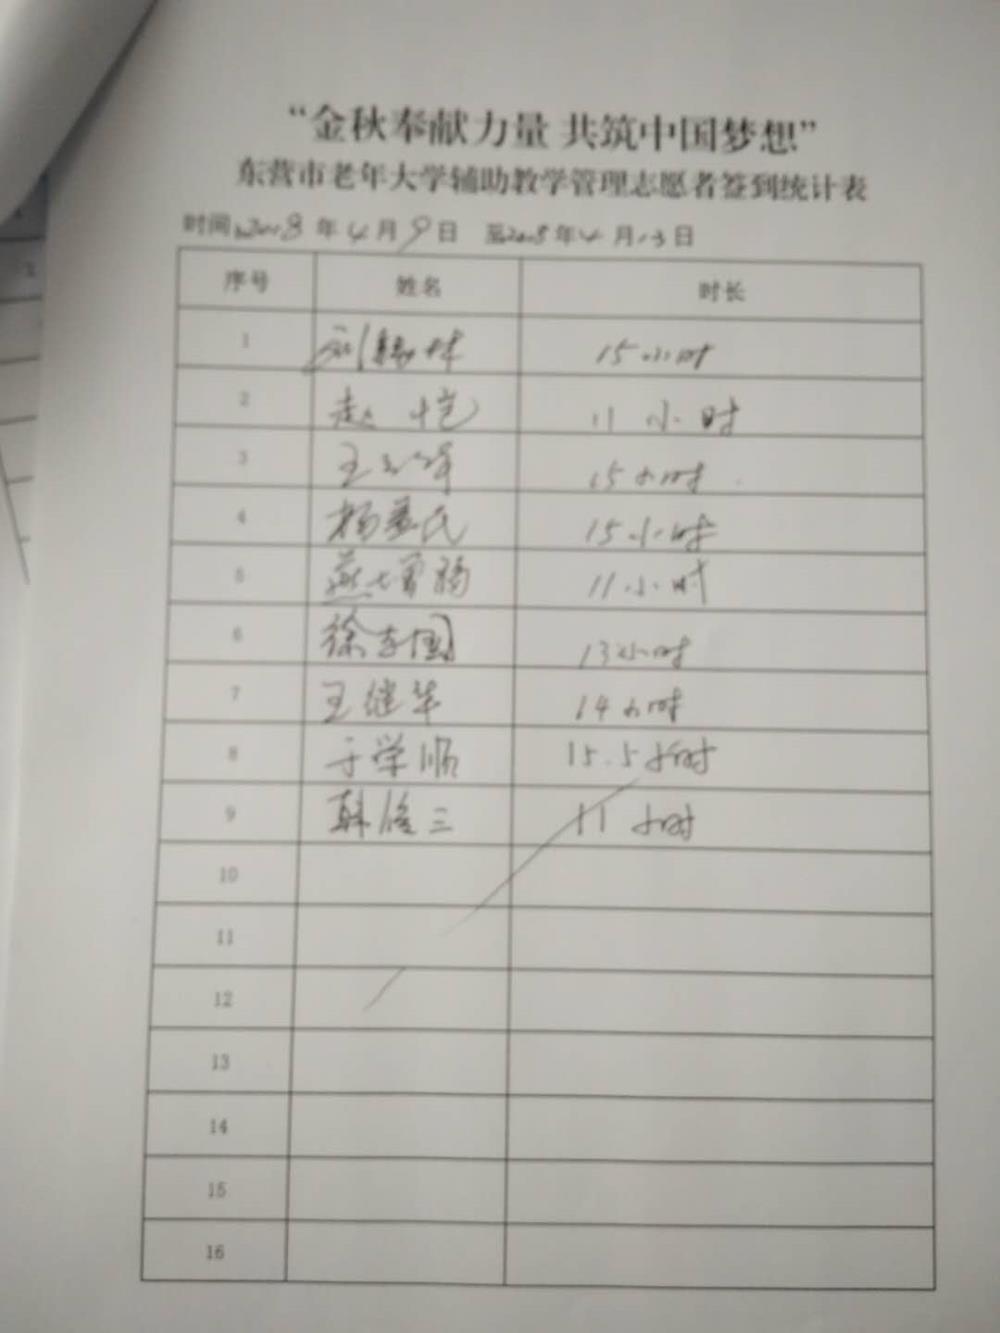 “金秋奉献力量 共筑中国梦想”
东营市老年大学辅助教学管理志愿者签到统计表
时间:2018年4月9日 至2018年4月13日
序号 姓名 时长
1 刘 林 15小时
2 赵恺 11小时
3 王 15小时
4 杨爱民 15小时
5 燕增 11小时
6 徐志国 13小时
7 王继华 14小时
8 于学顺 15.5小时
9 韩俊三 11小时
10
11
12
13
14
15
16